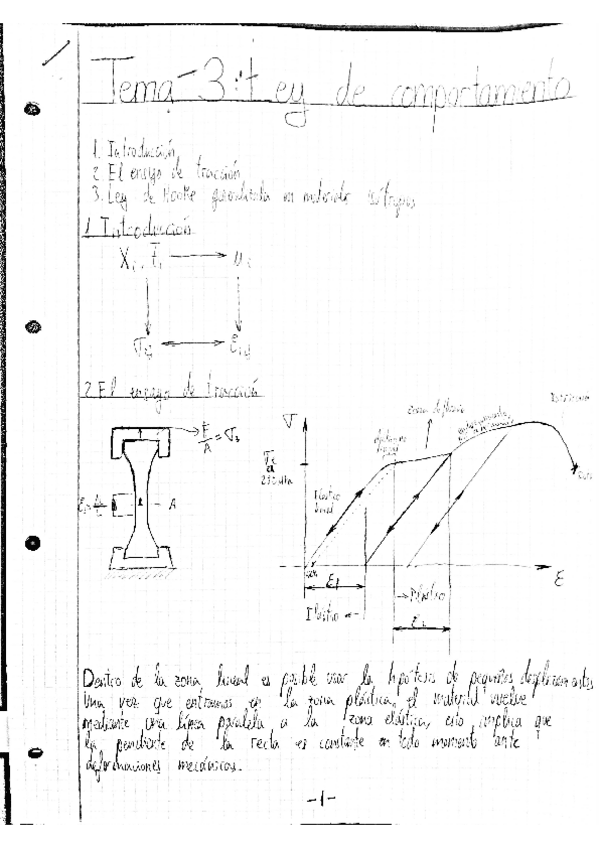 Tema-3: Ley de comportamiento
1. Introducción
2. El ensayo de tracción
3. Ley de Hooke generalizada en materiales isótropos
1 Introducción
2 El ensayo de tracción
F/A = σ
A
σ
zona de fluencia
Elástico lineal
ε
Elástico
→ Plástico
Dentro de la zona lineal es posible usar la hipótesis de pequeños desplazamientos
Una vez que entramos en la zona plástica, el material vuelve
mediante una línea paralela a la zona elástica, esto implica que
la pendiente de la recta es constante en todo momento ante
deformaciones mecánicas.
-1-